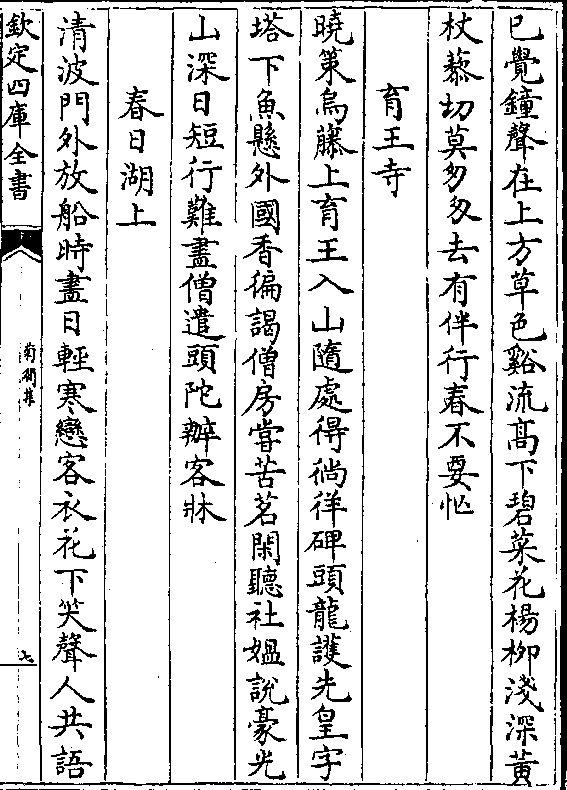 已覺鐘聲在上方草色谿流髙下碧菜花楊柳淺深黄
杖藜切莫匆匆去有伴行春不要忙
育王寺
曉策烏藤上育王入山隨處得徜徉碑頭龍護先皇字
塔下魚懸外國香徧謁僧房嘗苦茗閑聽社媼說豪光
山深日短行難盡僧遣頭陀辦客牀
春日湖上
清波門外放船時盡日輕寒戀客衣花下笑聲人共語
欽定四庫全書
菊磵集
七